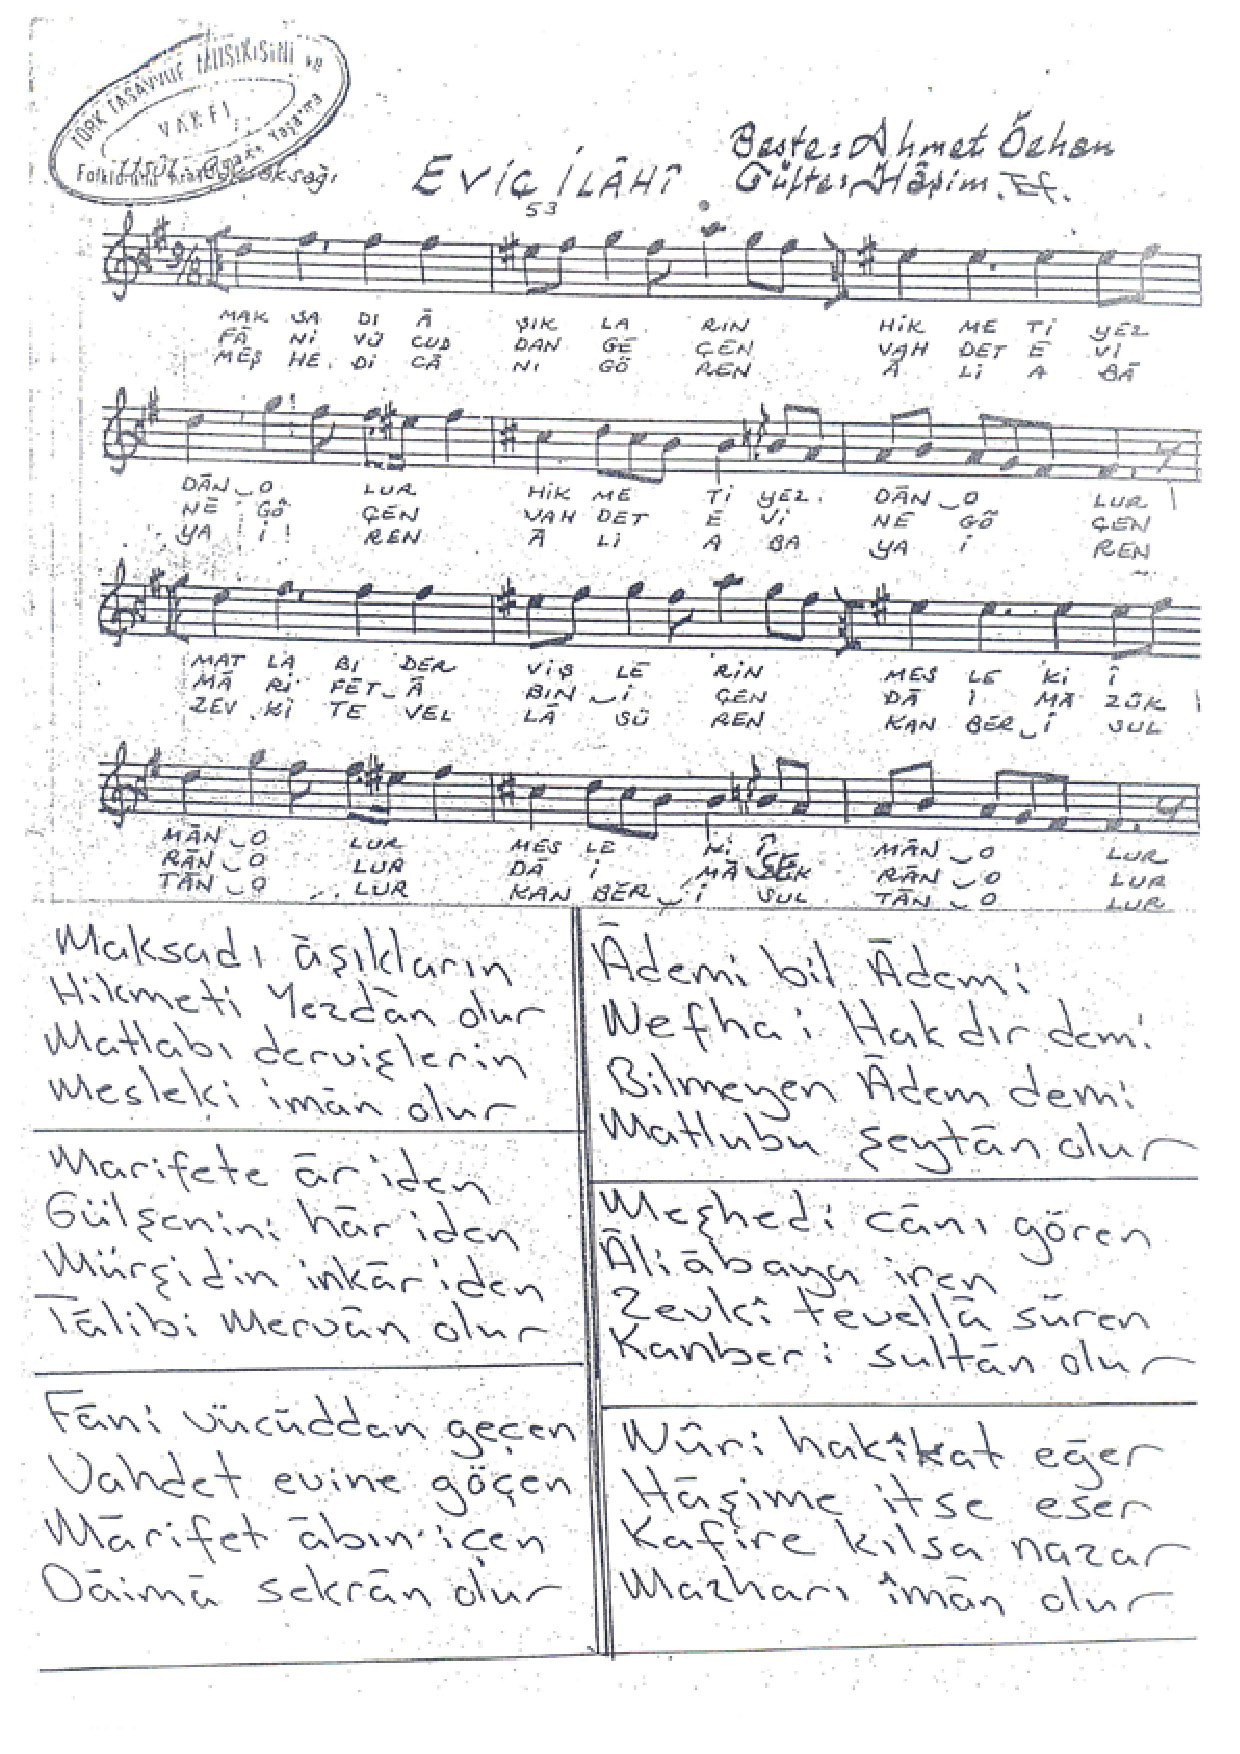 TÜRK TASAVVUF MUSIKISINI ve
VAKFI
EVİÇ İLÂHÎ
Beste: Ahmet Özhan
Güfte: Hâşim Ef.
53
9/8
MAK SA DI Â ŞIK LA RIN HİK ME Tİ YEZ
FÂ Nİ VÜ CUD DAN GE ÇEN VAH DET E Vİ
MEŞ HE Dİ CÂ NI GÖ REN Â Lİ A BÂ
DÂN O LUR HİK ME Tİ YEZ DÂN O LUR
NE GÖ ÇEN VAH DET E Vİ NE GÖ ÇEN
YA İ REN Â Lİ A BA YA İ REN
MAT LA BI DER VİŞ LE RİN MES LE Kİ Î
MÂ Rİ FET Â BIN İ ÇEN DÂ İ MA ZÜK
ZEV Kİ TE VEL LÂ SÜ REN KAN BER İ SUL
MÂN O LUR MES LE Kİ Î MÂN O LUR
RÂN O LUR DÂ İ MÂ RÂN O LUR
TÂN O LUR KAN BER İ SUL TÂN O LUR
Maksadı âşıkların
Hikmeti Yezdân olur
Matlabı dervişlerin
Mesleki imân olur
Marifete âr iden
Gülşenini hâr iden
Mürşidin inkâr iden
Tâlibi Mervân olur
Fâni vücûddan geçen
Vahdet evine göçen
Mârifet âbın içen
Dâimâ sekrân olur
Âdemi bil Âdemi
Nefha i Hak dır demi
Bilmeyen Âdem demi
Matlubu şeytân olur
Meşhedi cânı gören
Âliâbaya iren
Zevki tevellâ süren
Kanberi sultân olur
Nûri hakîkat eğer
Hâşime itse eser
Kafire kılsa nazar
Mazharı îmân olur